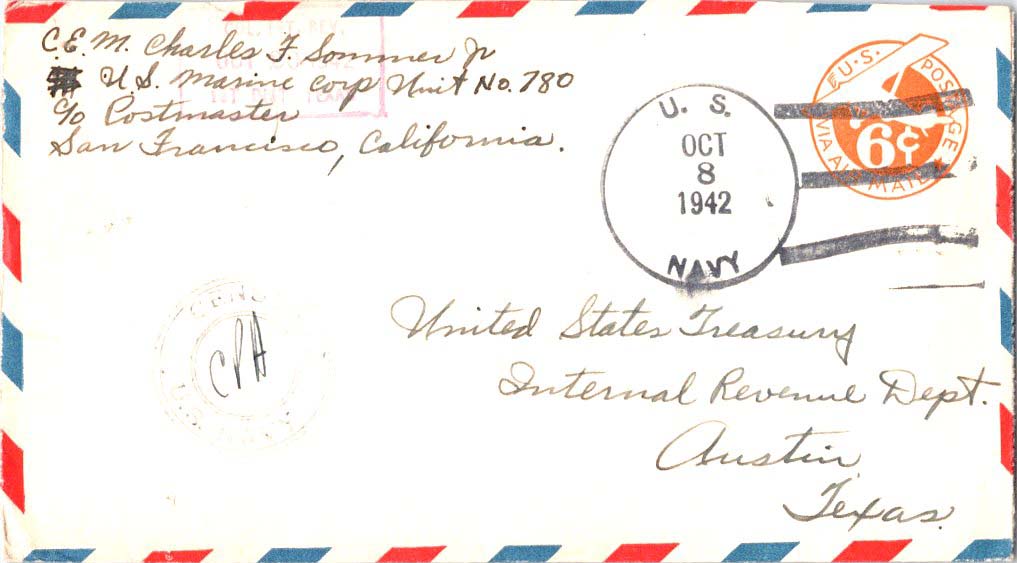 C.E.M. Charles F. Sommer Jr
U.S. Marine Corp Unit No. 780
c/o Postmaster
San Francisco, California.
COL. INT. REV.
OCT
U. S.
OCT
8
1942
NAVY
U.S. POSTAGE
6¢
VIA AIR MAIL
CENSOR
CPA
U.S. NAVY
United States Treasury
Internal Revenue Dept.
Austin
Texas.